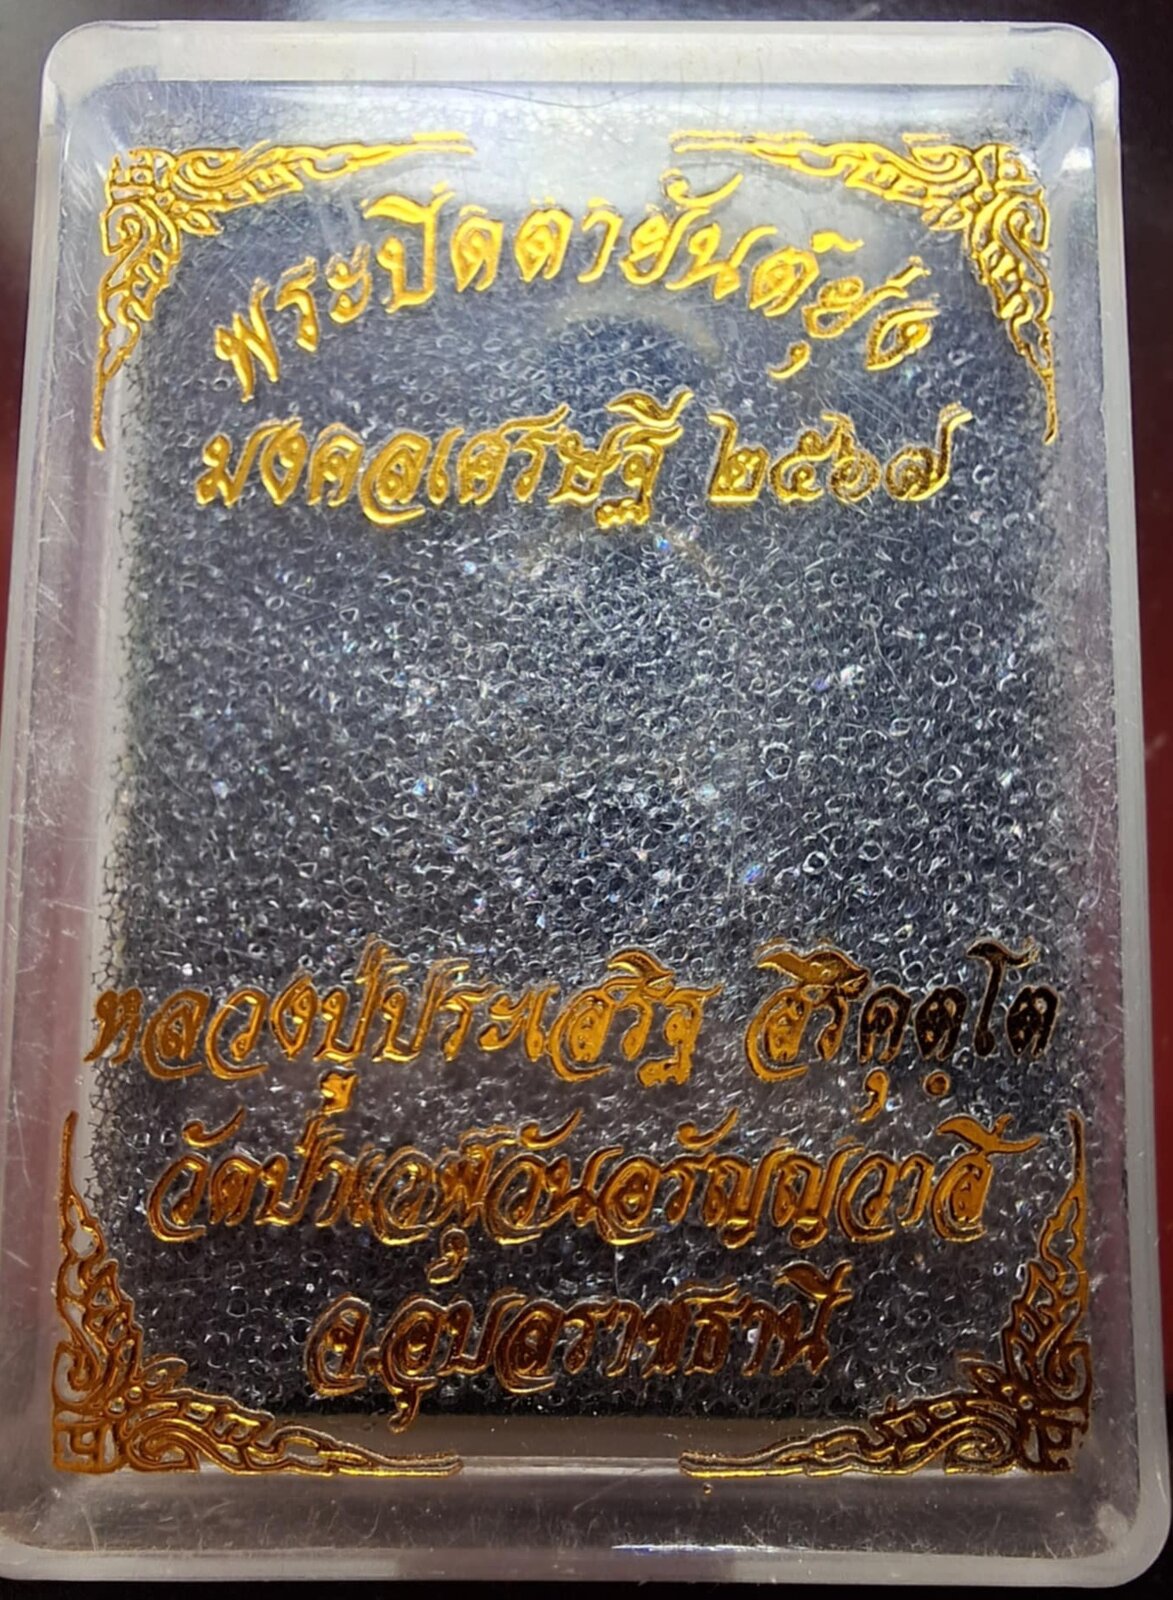 พระปิดตายันต์ยุ่ง
มงคลเศรษฐี ๒๕๖๗
หลวงปู่ประเสริฐ สิริคุตฺโต
วัดป่าเวฬุวันอรัญญวาสี
จ.อุบลราชธานี